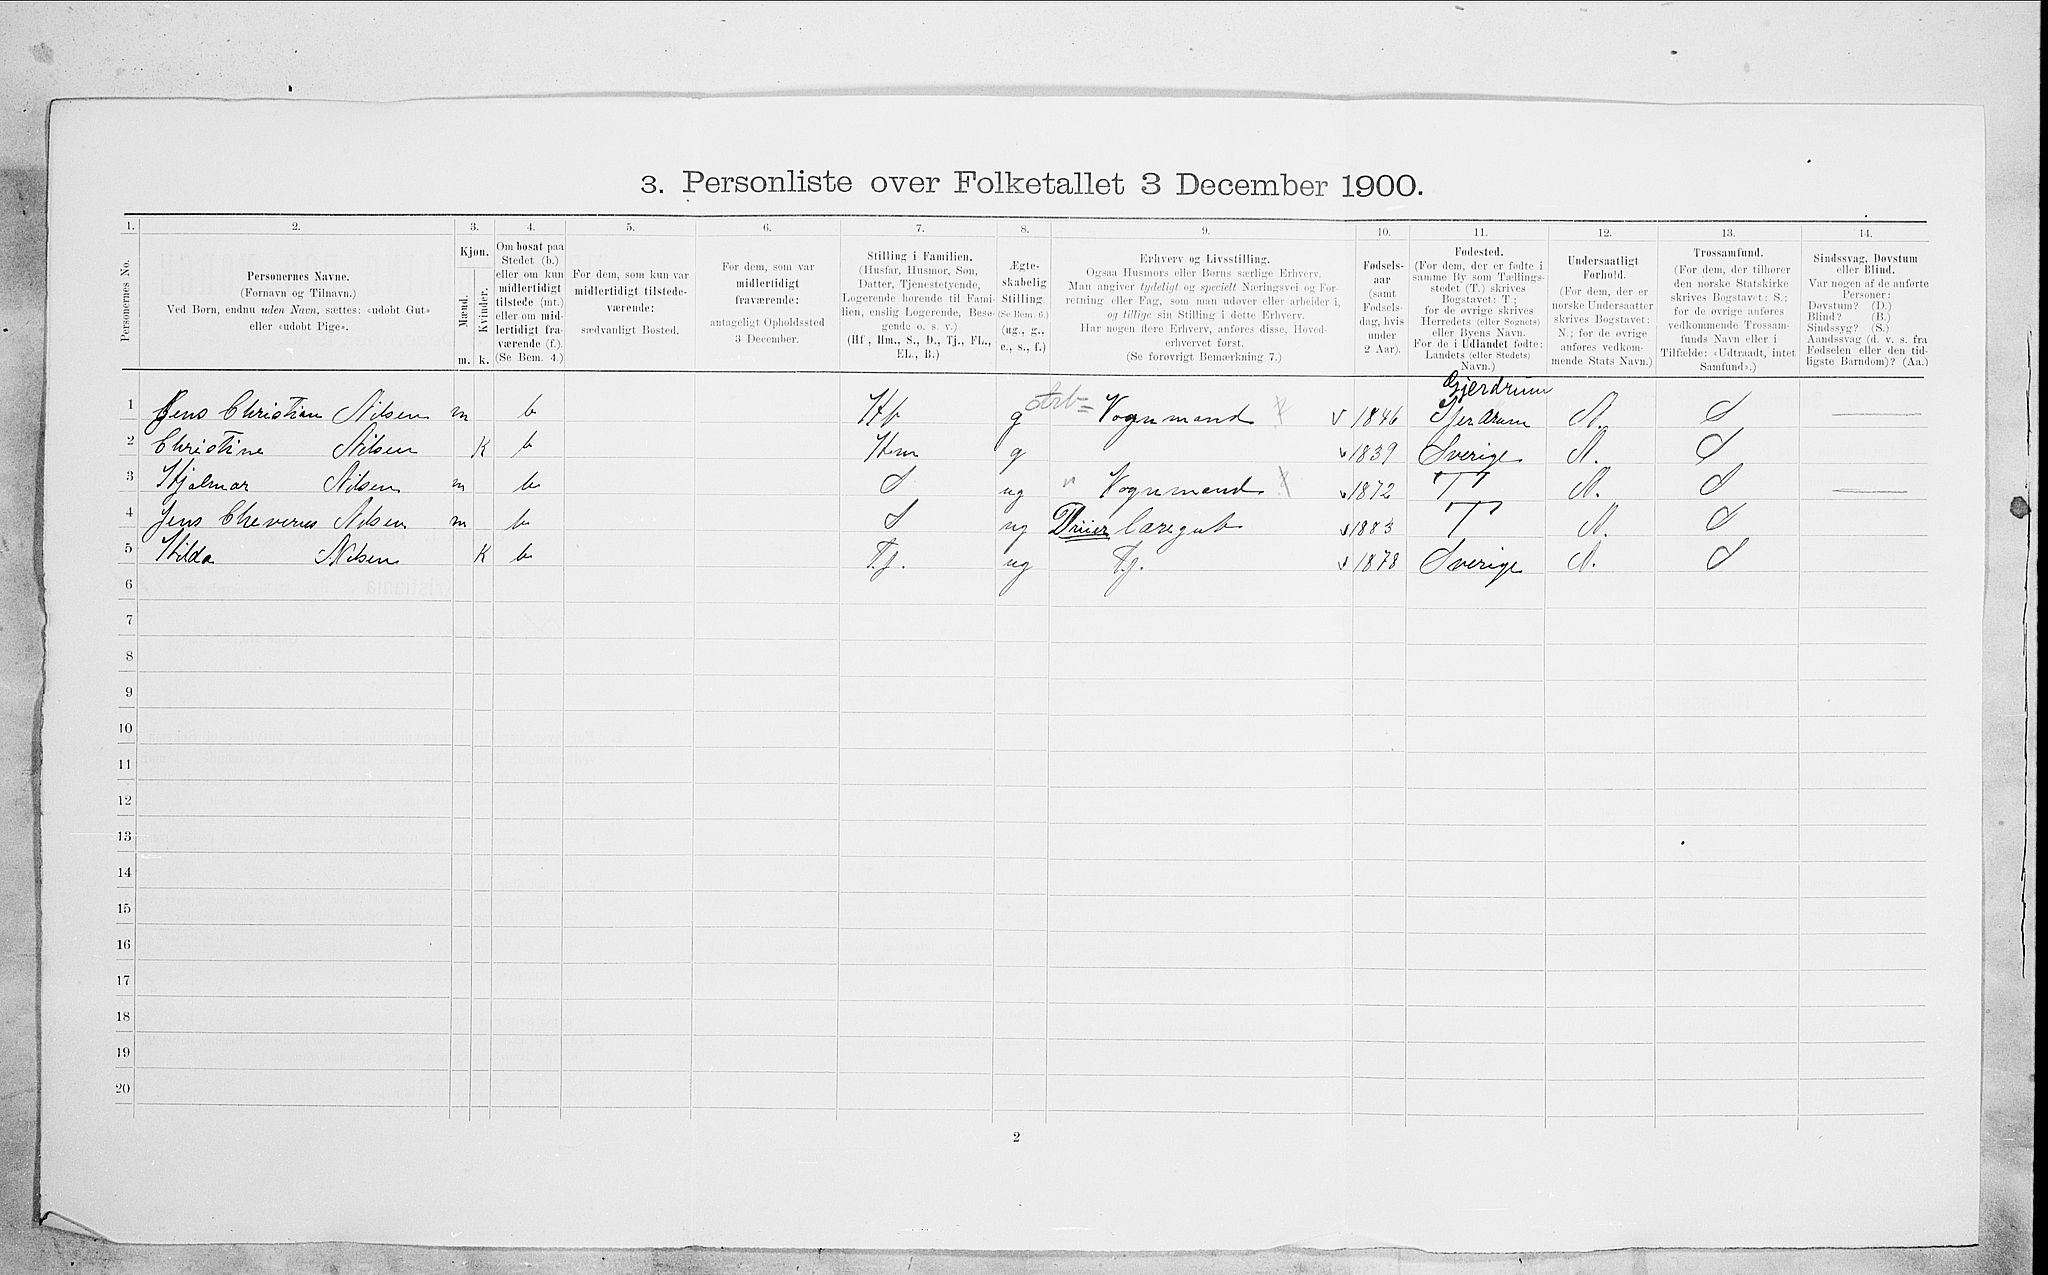 3. Personliste over Folketallet 3 December 1900.
1. 2. 3. 4. 5. 6. 7. 8. 9. 10. 11. 12. 13. 14.
Personernes No.
Personernes Navne.
(Fornavn og Tilnavn.)
Ved Børn, endnu uden Navn, sættes: «udøbt Gut»
eller «udøbt Pige».
Kjøn.
Mænd.
Kvinder.
m. k.
Om bosat paa
Stedet (b.)
eller om kun
midlertidigt
tilstede (mt.)
eller om mid-
lertidigt fra-
værende (f.).
(Se Bem. 4.)
For dem, som kun var
midlertidigt tilstede-
værende:
sædvanligt Bosted.
For dem, som var
midlertidigt
fraværende:
antageligt Opholdssted
3 December.
Stilling i Familien.
(Husfar, Husmor, Søn,
Datter, Tjenestetyende,
Logerende hørende til Fami-
lien, enslig Logerende, Besø-
gende o. s. v.)
(Hf., Hm., S., D., Tj., FL.,
EL., B.)
Ægte-
skabelig
Stilling.
(Se Bem. 6.)
(ug., g.,
e., s., f.)
Erhverv og Livsstilling.
Ogsaa Husmors eller Børns særlige Erhverv.
Man angiver tydeligt og specielt Næringsvei og For-
retning eller Fag, som man udøver eller arbeider i,
og tillige sin Stilling i dette Erhverv.
Har nogen flere Erhverv, anføres disse, Hoved-
erhvervet først.
(Se forøvrigt Bemærkning 7.)
Fødsels-
aar
(samt
Fødsels-
dag, hvis
under
2 Aar).
Fødested.
(For dem, der er fødte i
samme By som Tællings-
stedet (T.) skrives
Bogstavet: T;
for de øvrige skrives
Herredets (eller Sognets)
eller Byens Navn.
For de i Udlandet fødte:
Landets (eller Stedets)
Navn.)
Undersaatligt
Forhold.
(For dem, der er
norske Undersaatter
skrives Bogstavet:
N.; for de øvrige
anføres vedkom-
mende Stats Navn.)
Trossamfund.
(For dem, der tilhører
den norske Statskirke
skrives Bogstavet: S.;
for de øvrige anføres
vedkommende Trossam-
funds Navn eller i
Tilfælde: «Udtraadt, intet
Samfund».)
Sindssvag, Døvstum
eller Blind.
Var nogen af de anførte
Personer:
Døvstum? (D.)
Blind? (B.)
Sindssyg? (S.)
Aandssvag (d. v. s. fra
Fødselen eller den tid-
ligste Barndom)? (Aa.)
Gjerdrum
1 Jens Christian Nilsen m b Hf g Arb= Vognmand v 1846 Gjerdrum N. S
2 Christine Nilsen K b Hm g v 1839 Sverige N. S
3 Hjalmar Nilsen m b S ug " Vognmand v 1872 T N. S
4 Jens Nilsen m b S ug Dreier Læregut v 1883 T N. S
5 Hilda Nilsen K b Tj. ug Tj. v 1878 Sverige N. S
6
7
8
9
10
11
12
13
14
15
16
17
18
19
20
2